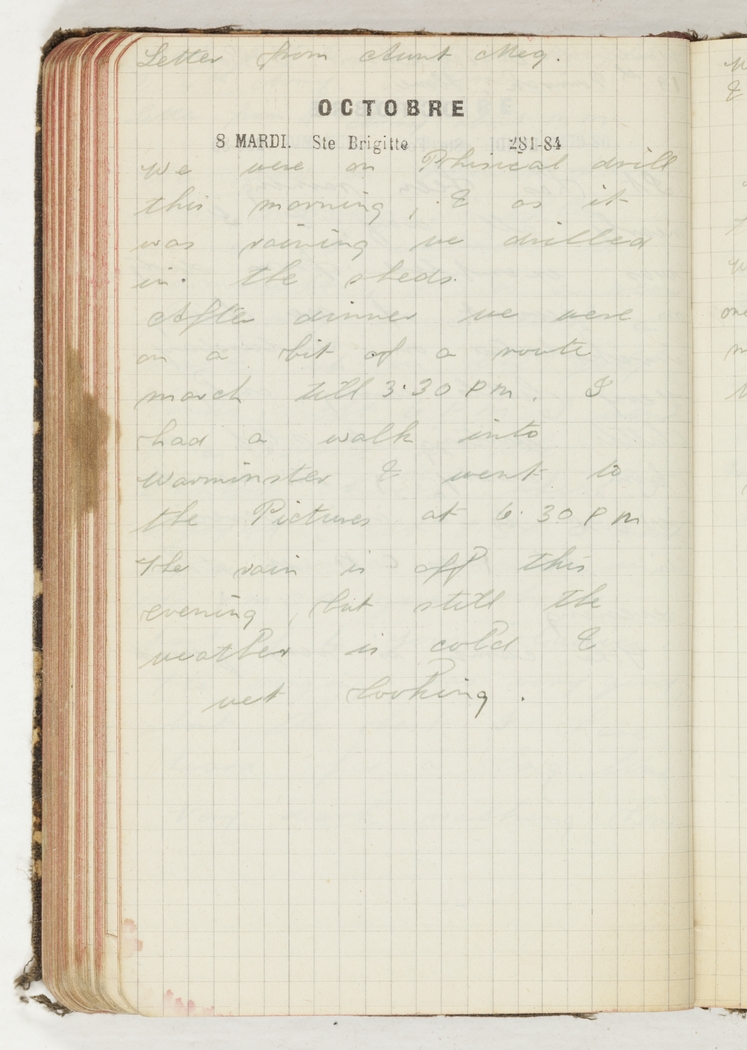 Letter from Aunt Meg.
OCTOBRE
8 MARDI. Ste Brigitte 281-84
We were on Phisical drill
this morning, & as it
was raining we drilled
in the sheds.
After dinner we were
on a bit of a route
march till 3.30 pm. I
had a walk into
Warminster & went to
the Pictures at 6.30 pm
The rain is off this
evening, but still the
weather is cold &
wet looking.